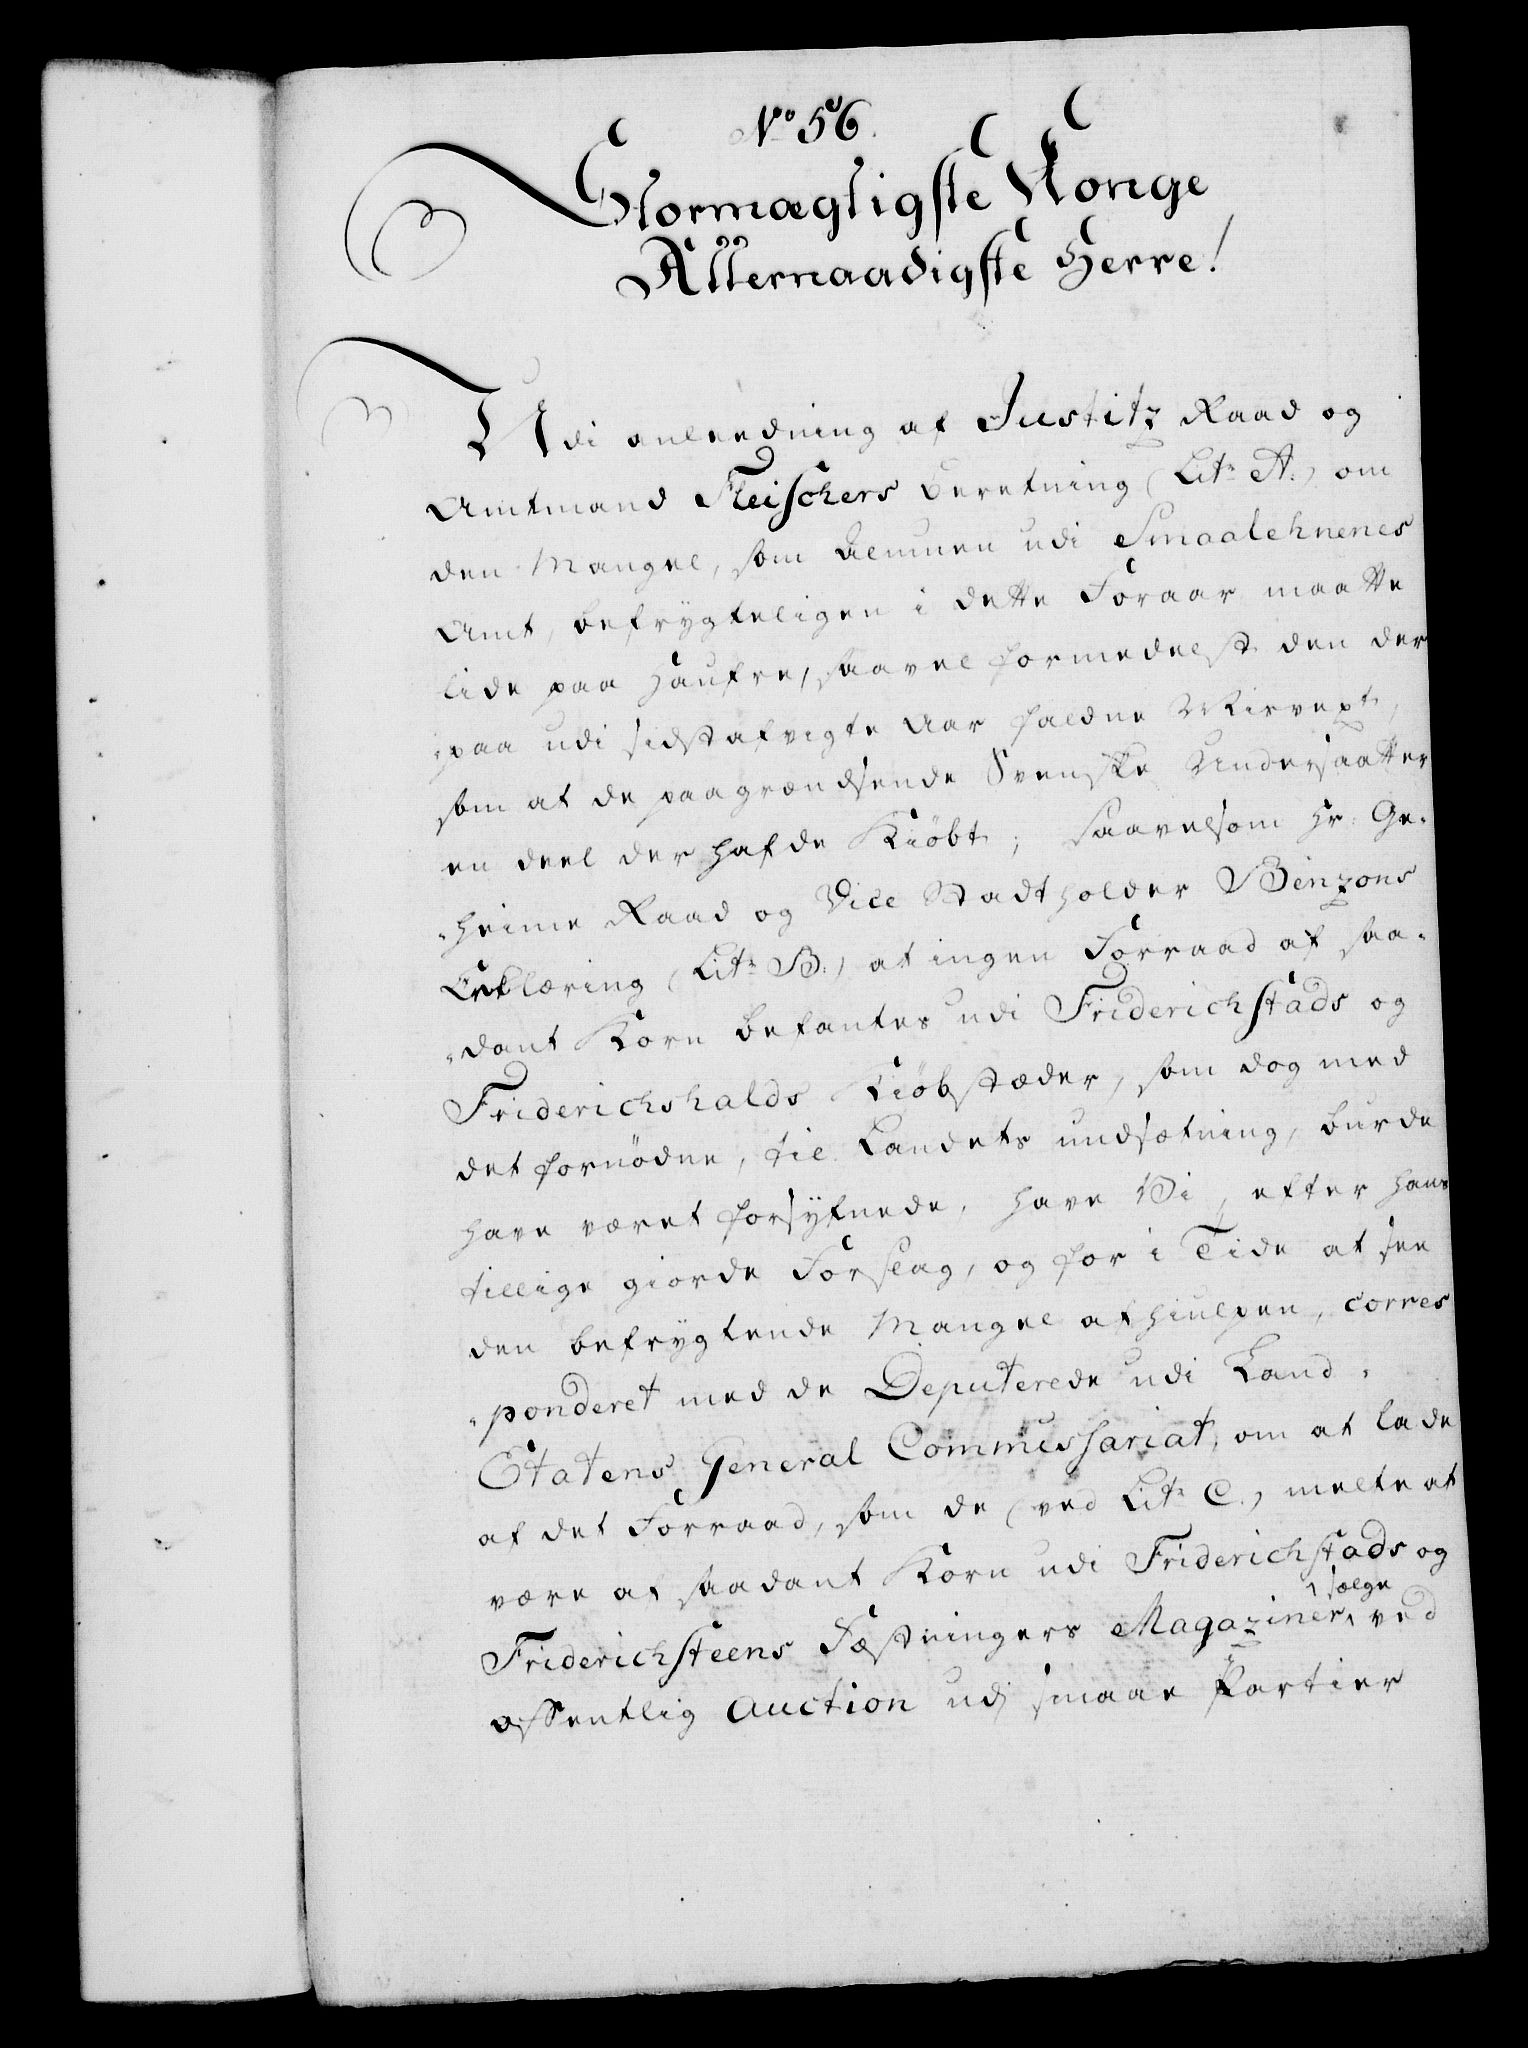 No 56.
Stormægtigste Konge
Allernaadigste Herre!
Udi anleedning af Justitz Raad og
Amtmand Fleischers beretning (Litr A.) om
den Mangel, som Almuen udi Smaalehnenes
Amt, befrygteligen i dette Foraar maatte
lide paa Haufre, saavel formedelst den der
-paa udi sidstafvigte Aar faldne Misvext,
som at de paagrændsende Svenske Undersaatter
en deel der hafde Kiøbt; saavelsom Hr: Ge-
-heime Raad og Vice Stadtholder Benzons
Erklæring (Litr B.) at ingen Forraad af saa-
-dant Korn befantes udi Friderichstads og
Friderichshalds Kiøbstæder, som dog med
det fornødne, til Landets undsætning, burde
have været forsyfnede, have Vi, efter hans
tillige giorde Forslag, og for i Tide at see
den befrygtende Mangel afhiulpen, corres
-ponderet med de Deputerede udi Land-
Etatens General Commissariat, om at lade
af det Forraad, som de (ved Litr C.) melte at
være af saadant Korn udi Friderichstads og
Friderichsteens Fæstningers Magaziner, sælge ved
offentlig Auction udj smaae Partier